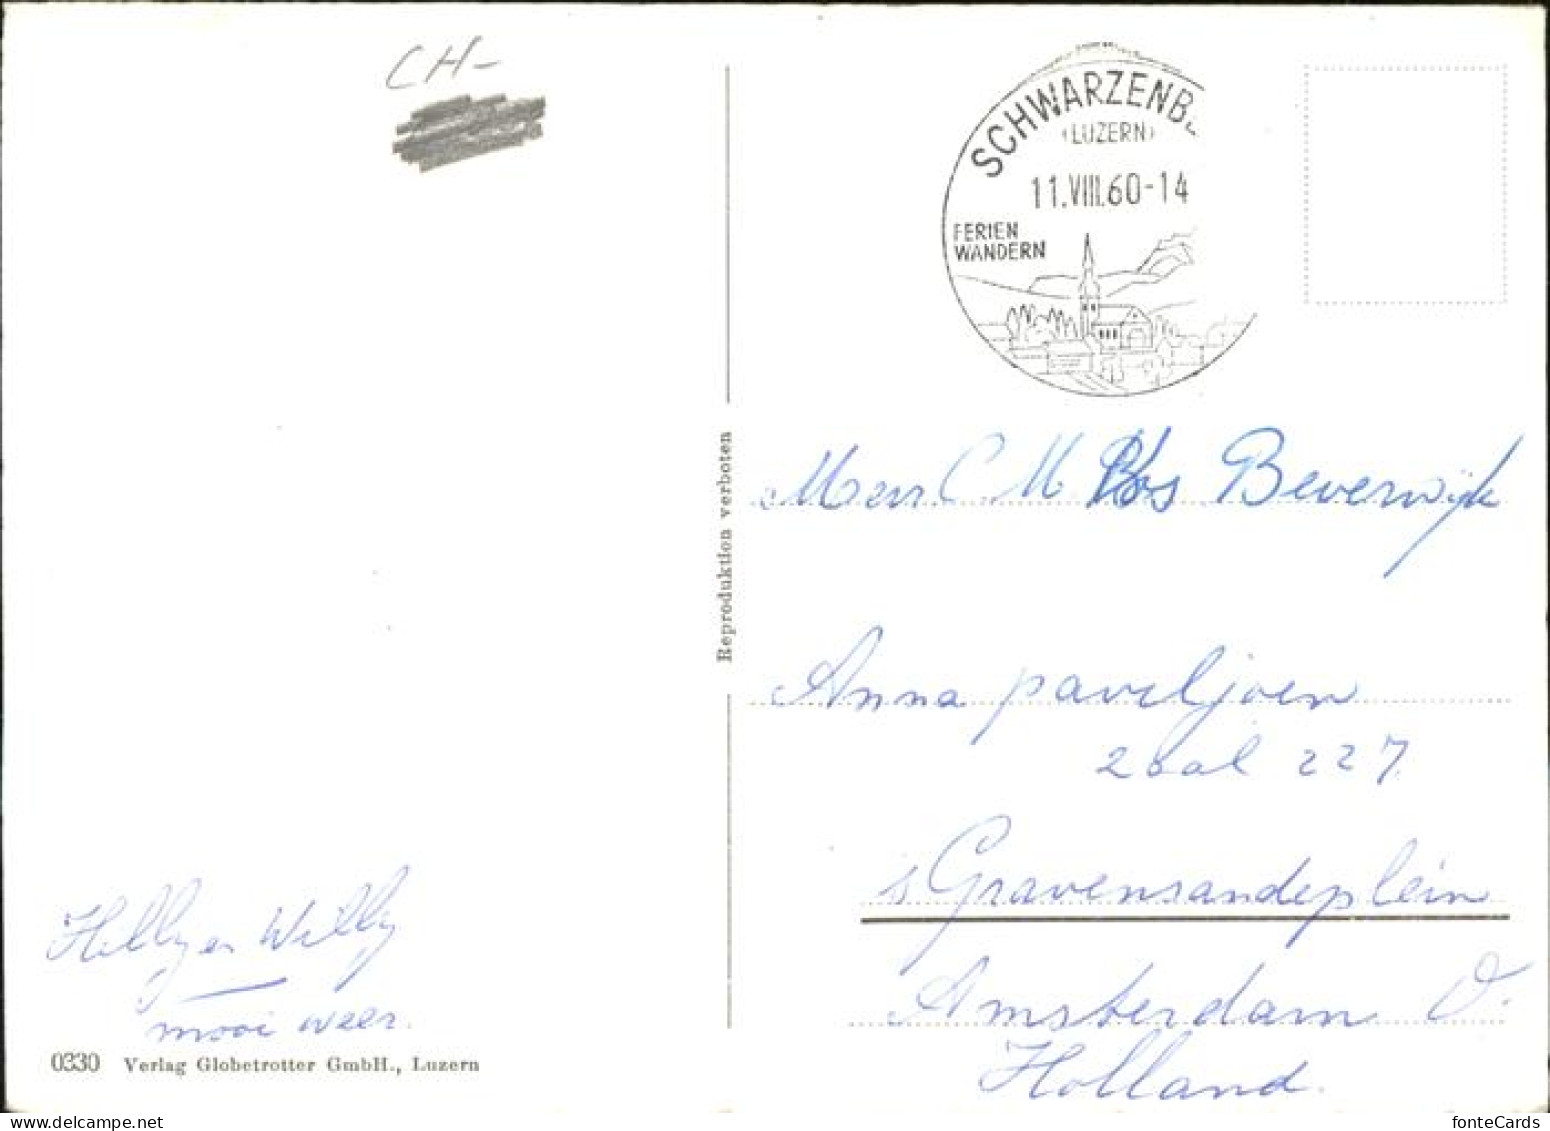 CH-
SCHWARZENB
(LUZERN)
11.VIII.60-14
FERIEN
WANDERN
Reproduktion verboten
C M Vos Beverwijk
Anna paviljoen
zaal 227.
s Gravensandeplein
Amsterdam O.
Holland.
Hilly en Willy
mooi weer.
0330 Verlag Globetrotter GmbH., Luzern
fonteCards